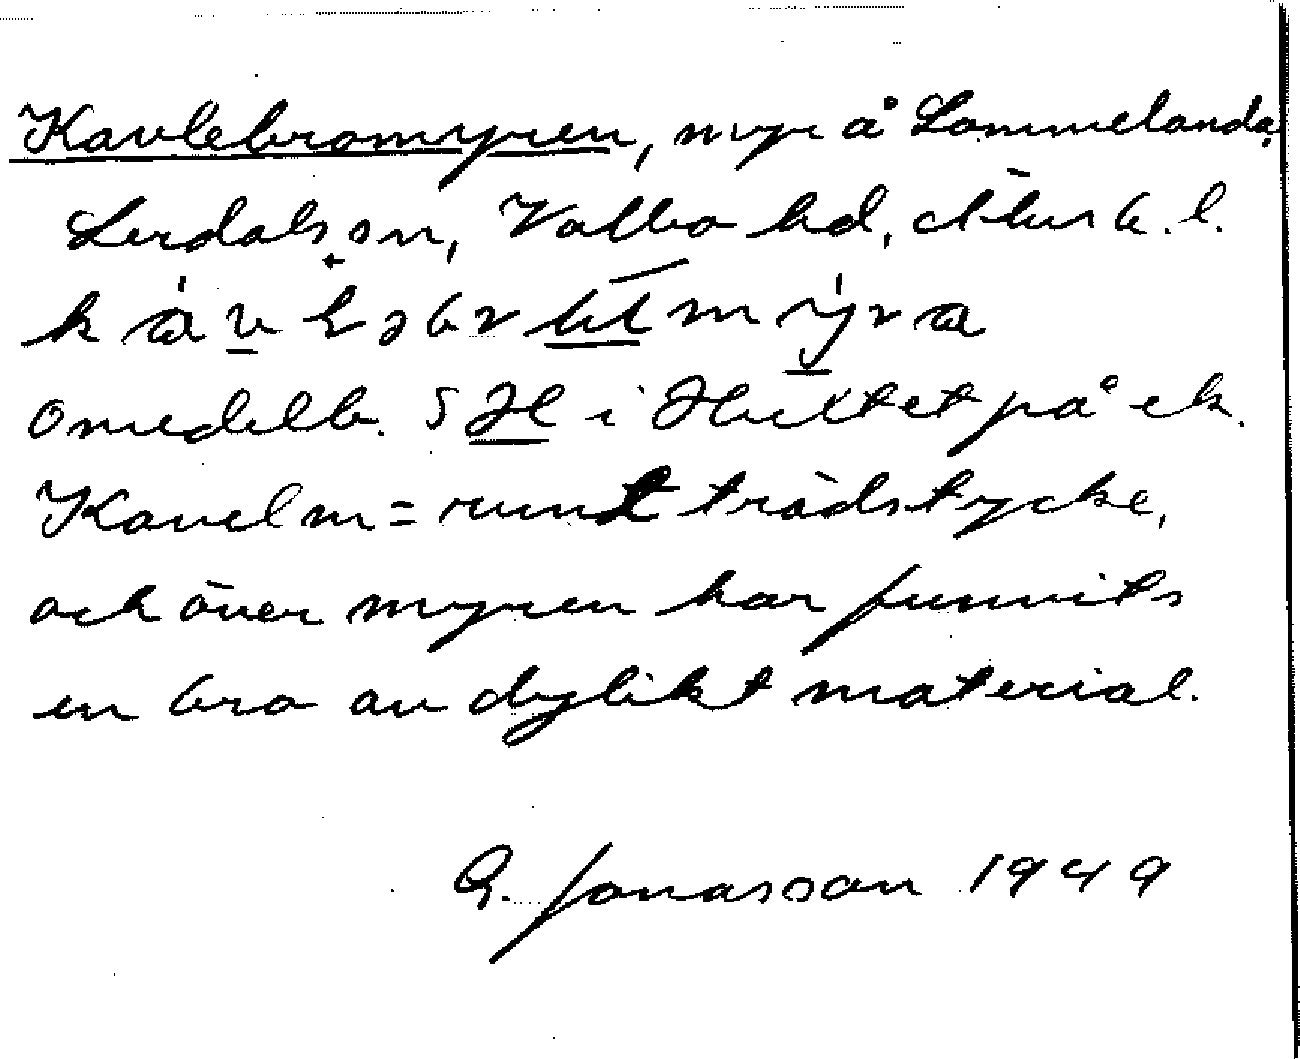 Kavlebromyren, myr å Sommelanda,
Lerdals sn, Valbo hd, Älvsb. l.
omedelb. S Hl i Hultet på ek.
Kavel m = runt trädstycke,
och över myren har funnits
en bro av dylikt material.
G. Jonasson 1949